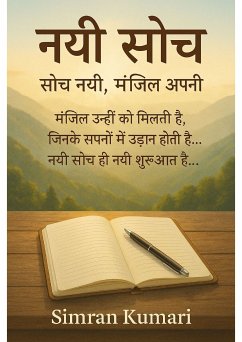 नयी सोच
सोच नयी, मंजिल अपनी
मंजिल उन्हीं को मिलती है,
जिनके सपनों में उड़ान होती है...
नयी सोच ही नयी शुरूआत है...
Simran Kumari